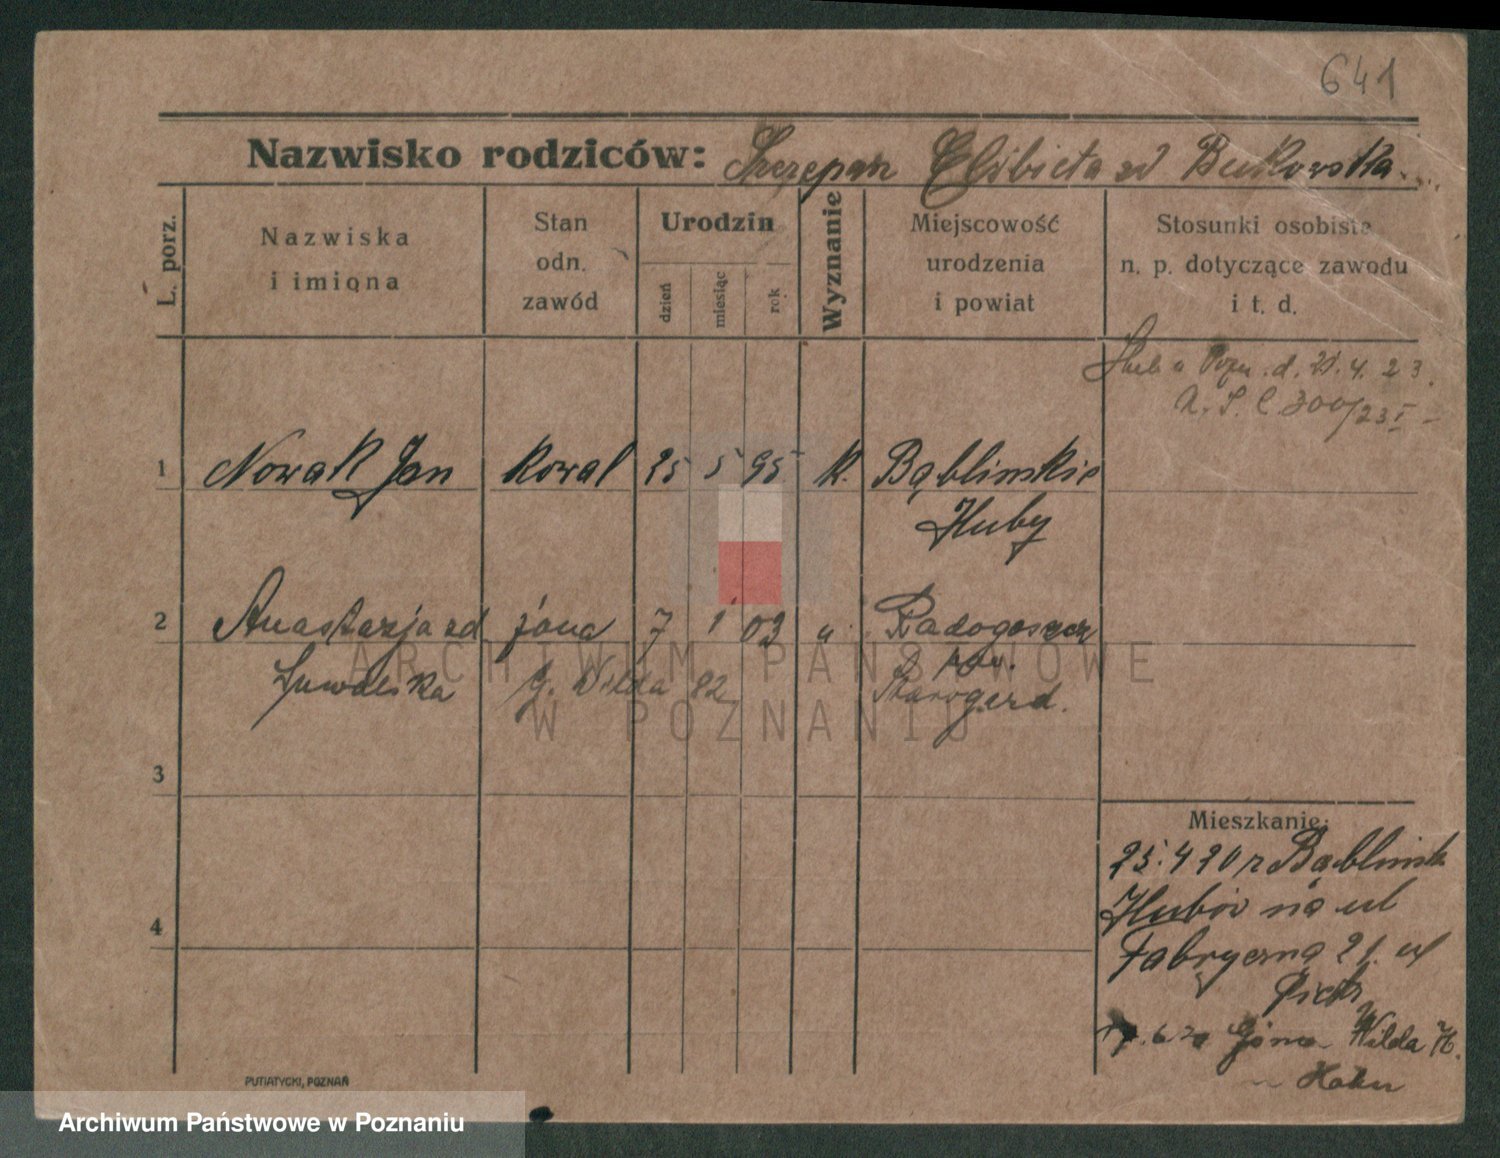 641
Nazwisko rodziców: Szczepan Elżbieta zd Bukowska
L. porz.
Nazwiska
i imiona
Stan
odn.
zawód
Urodzin
dzień
miesiąc
rok
Wyznanie
Miejscowość
urodzenia
i powiat
Stosunki osobiste
n. p. dotyczące zawodu
i t. d.
d. 21. 4. 23.
300/23 I
1 Nowak Jan kowal 25 5 95 k. Bąblinskie
Huby
2 Anastazja zd żona 7 1 03 " Radogoszcz
pow.
G. Wilda 82 Starogard.
3
4
Mieszkanie:
25. 4 20 r Bąblinsk
Hubów na ul
Fabryczna 21. ul
Piotr
6 20 Górna Wilda
PUTIATYCKI, POZNAŃ
ARCHIWUM PAŃSTWOWE
W POZNANIU
Archiwum Państwowe w Poznaniu